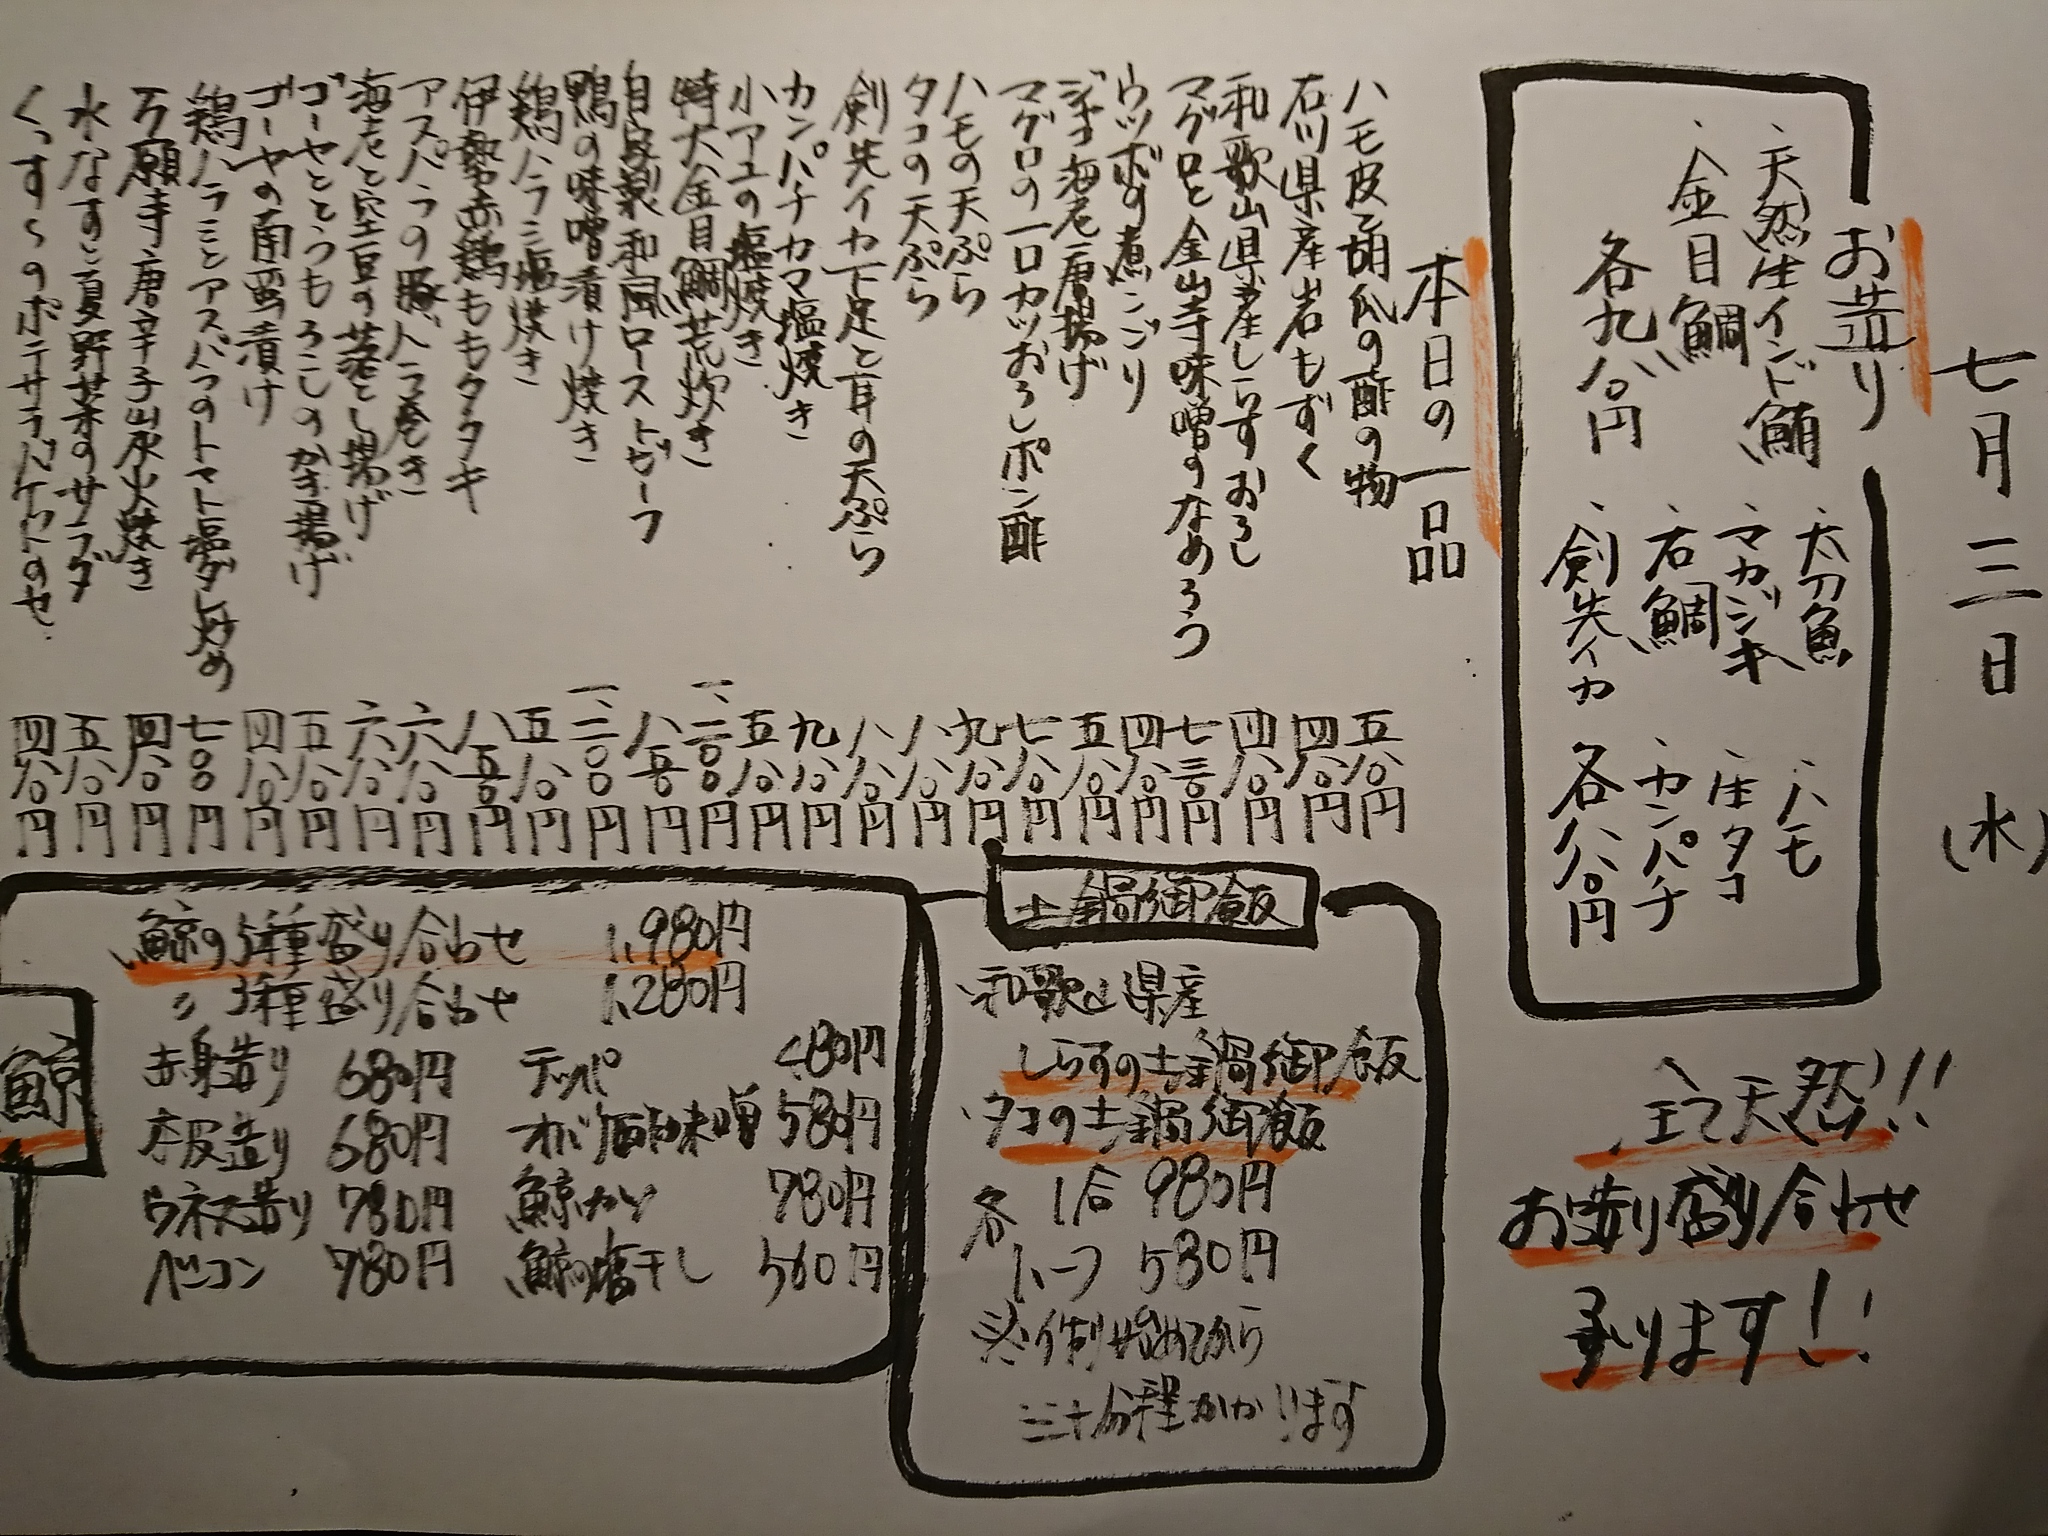 七月三日(水)
お造り
・天然生インド鮪
・金目鯛
各九八〇円
・太刀魚
・マカジキ
・石鯛
・剣先イカ
・ハモ
・生タコ
・カンパチ
各八八〇円
全て天然!!
お造り盛り合わせ
承ります!!
本日の一品
ハモ皮と胡瓜の酢の物 五八〇円
石川県産岩もずく 四八〇円
和歌山県産しらすおろし 四八〇円
マグロと金山寺味噌のなめろう 七三〇円
ウツボの煮こごり 四八〇円
ジャコ海老唐揚げ 五八〇円
マグロの一口カツおろしポン酢 七八〇円
ハモの天ぷら 九八〇円
タコの天ぷら 八八〇円
剣先イカ下足と耳の天ぷら 八八〇円
カンパチカマ塩焼き 九八〇円
小アユの塩焼き 五八〇円
特大金目鯛荒炊き 一、二〇〇円
自家製和風ローストビーフ 八五〇円
鴨の味噌漬け焼き 一、二〇〇円
鶏ハラミ塩焼き 五八〇円
伊勢赤鶏ももタタキ 八五〇円
アスパラの豚バラ巻き 六八〇円
海老と空豆の落とし揚げ 六八〇円
ゴーヤととうもろこしのかき揚げ 五八〇円
ゴーヤの南蛮漬け 四八〇円
鶏ハラミとアスパラのトマト塩ダレ炒め 七〇〇円
万願寺唐辛子炭火焼き 四八〇円
水なすと夏野菜のサラダ 五八〇円
くっす〜のポテサラバケットのせ 四八〇円
土鍋御飯
・和歌山県産
しらすの土鍋御飯
・タコの土鍋御飯
各 1合 980円
ハーフ 580円
※炊き始めてから
三十分程かかります
鯨
・鯨の5種盛り合わせ 1,980円
〃 3種盛り合わせ 1,280円
赤身造り 680円 テッパ 480円
本皮造り 680円 オバ酢味噌 580円
ウネス造り 780円 鯨カツ 780円
ベーコン 780円 鯨の塩干し 560円